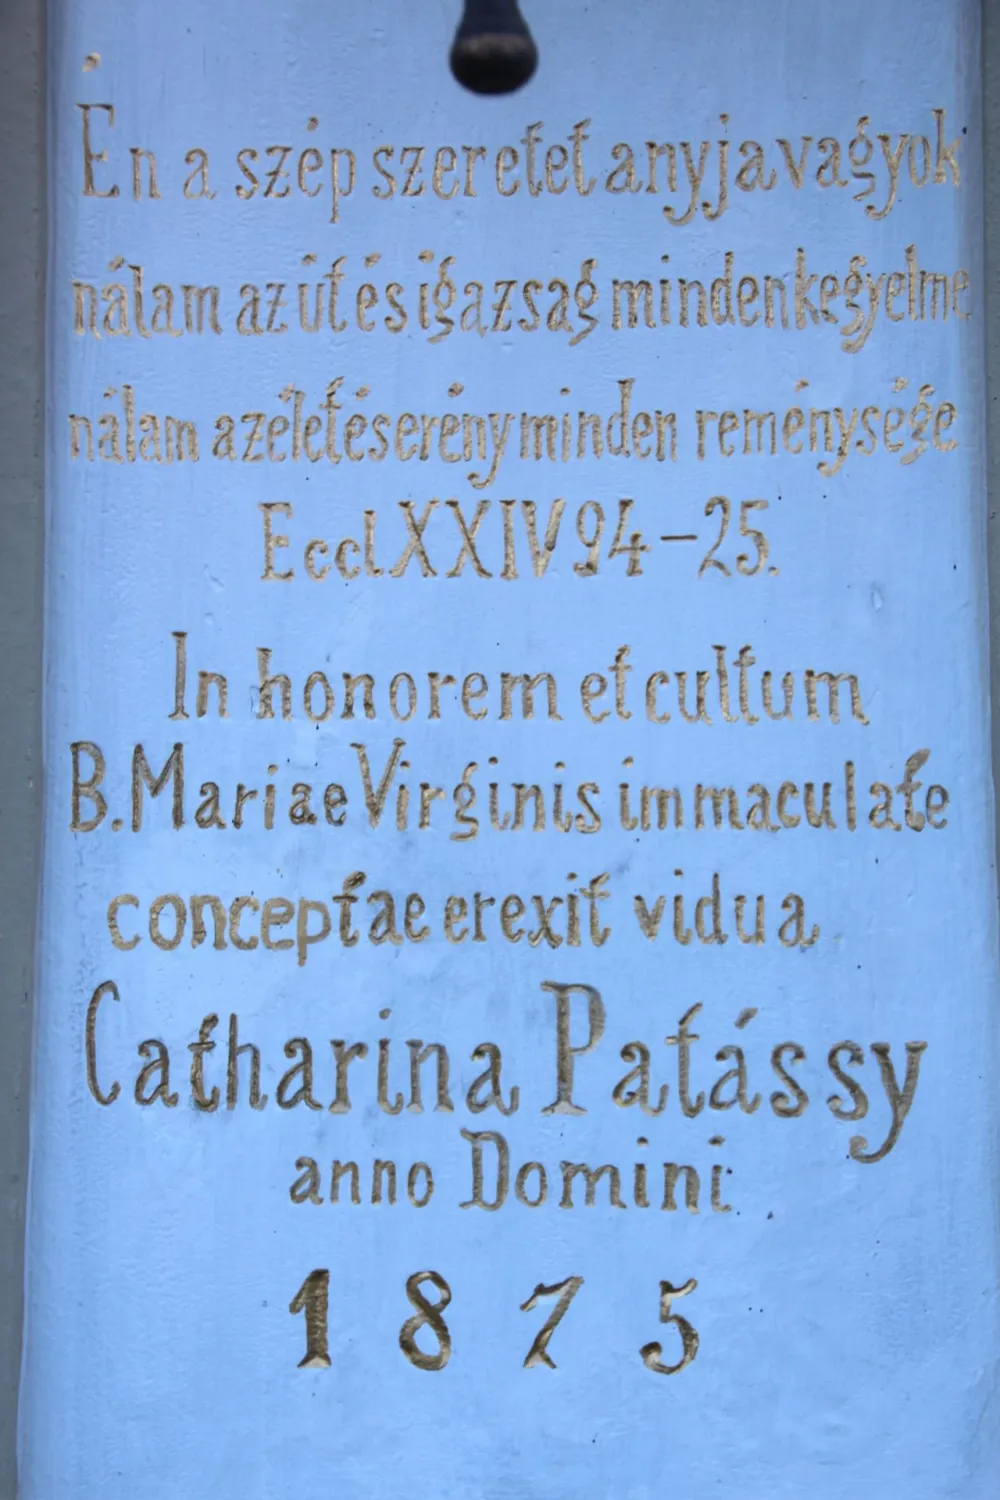 Én a szép szeretet anyja vagyok
nálam az út és igazság minden kegyelme
nálam az élet és erény minden reménysége
Eccl XXIV 94-25.
In honorem et cultum
B. Mariae Virginis immaculate
conceptae erexit vidua
Catharina Patássy
anno Domini
1875